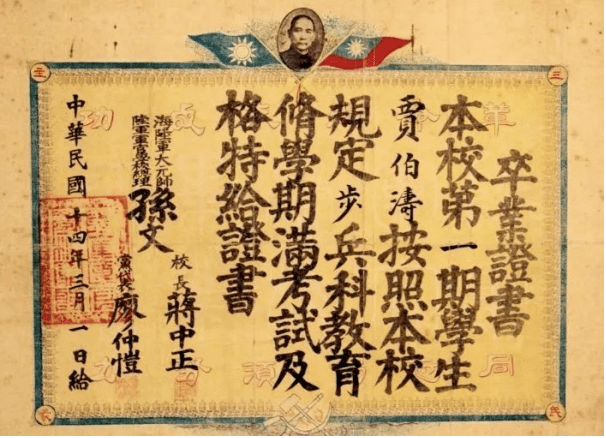 卒業證書
本校第一期學生
賈伯濤按照本校
規定步兵科教育
脩學期滿考試及
格特給證書
海陸軍大元帥
陸軍軍官學校總理
孫文
校長
蔣中正
黨代表
廖仲愷
中華民國十四年三月一日給